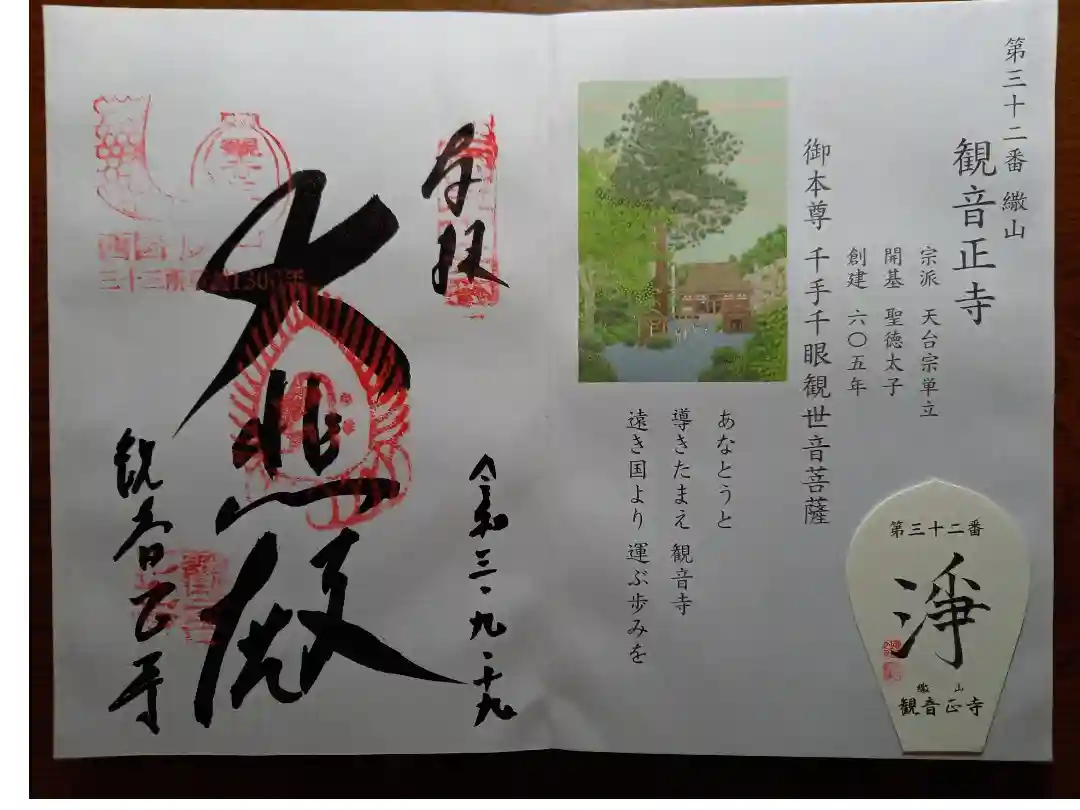 第三十二番 繖山
観音正寺
宗派 天台宗単立
開基 聖徳太子
創建 六〇五年
御本尊 千手千眼観世音菩薩
あなとうと
導きたまえ 観音寺
遠き国より 運ぶ歩みを
第三十二番
淨
繖山
観音正寺
奉拝
大悲殿
令和三・九・十九
観音正寺
三十三所草創1300年